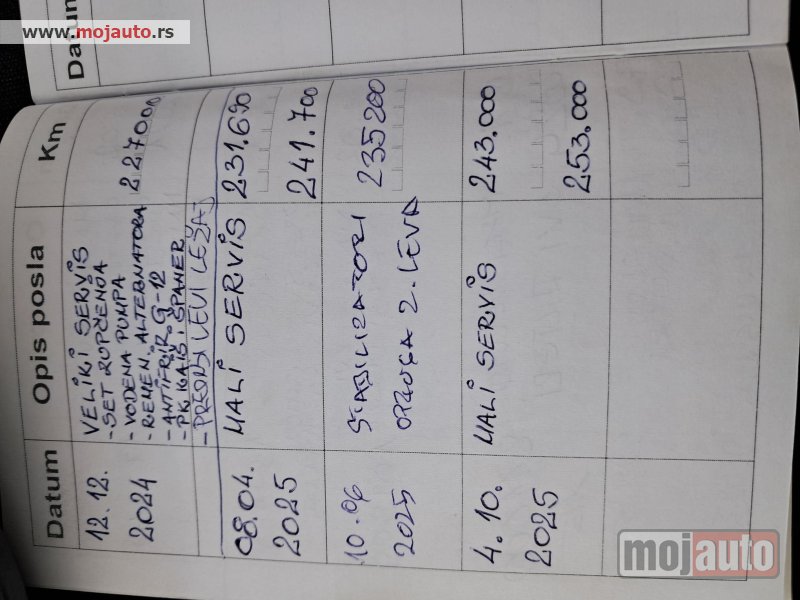 www.mojauto.rs
Datum
Datum Opis posla Km
12.12. 2024
VELIKI SERVIS
- SET ZUPČENJA
- VODENA PUMPA
- REMEN ALTERNATORA
- ANTIFRIZ G-12
- PK KAIŠ I ŠPANER
- PREDNJI LEVI LEŽAJ
227000
08.04. 2025
MALI SERVIS
231.690
241.700
10.06 2025
STABILIZATORI
OPRUGA Z. LEVA
235200
4.10. 2025
MALI SERVIS
243.000
253.000
mojauto